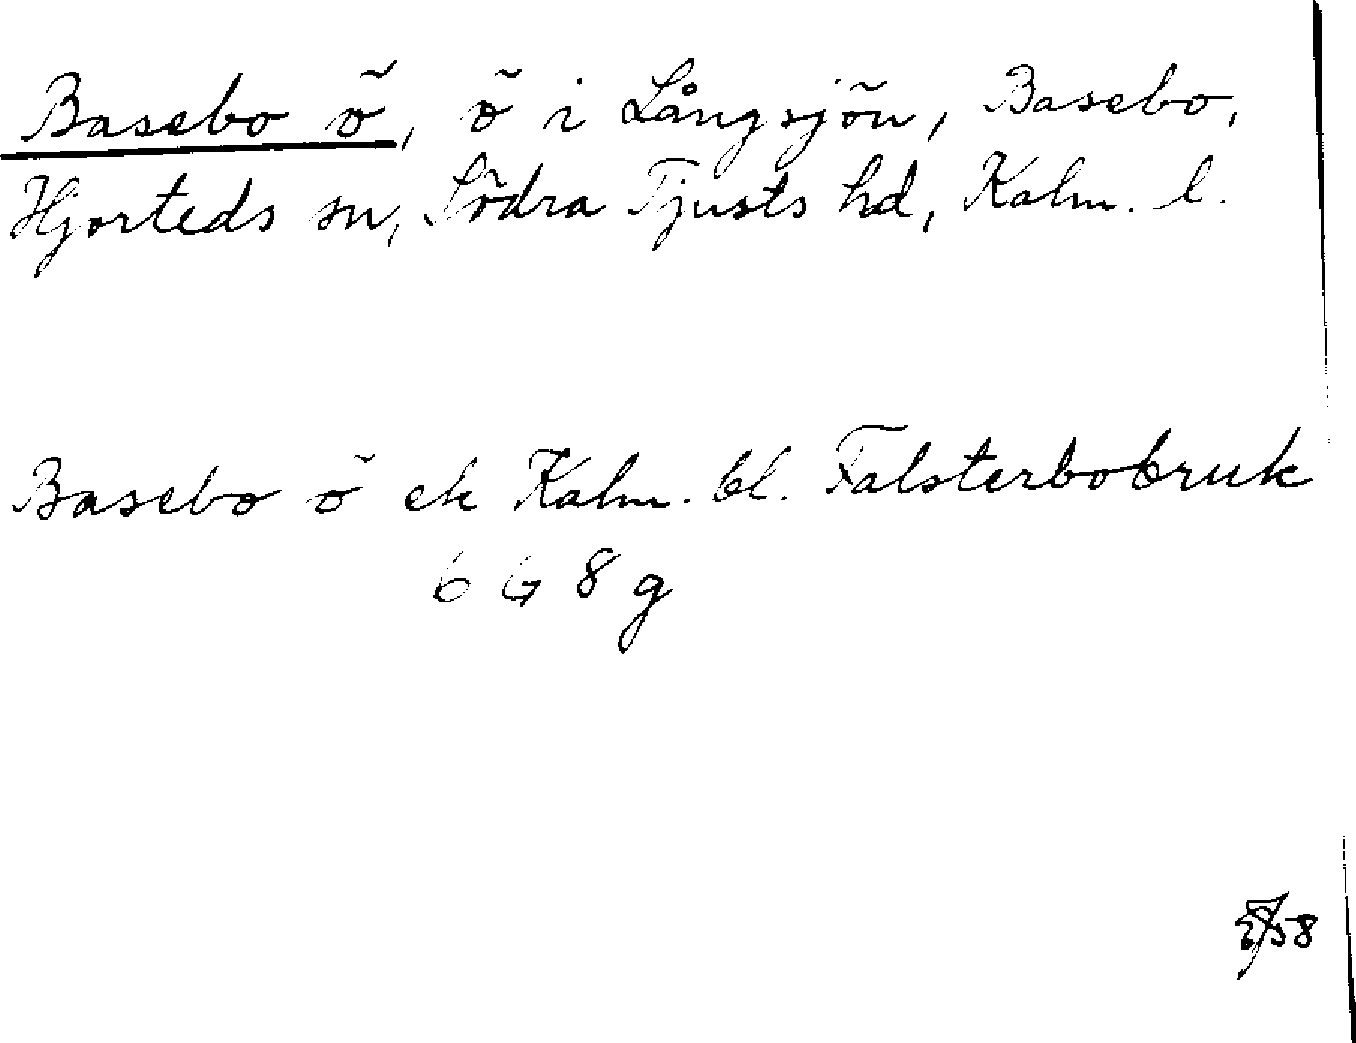 Basebo ö, ö i Långsjön, Basebo,
Hjorteds sn, Södra Tjusts hd, Kalm. l.
Basebo ö ek Kalm. bl. Falsterbobruk
6 G 8 g
58